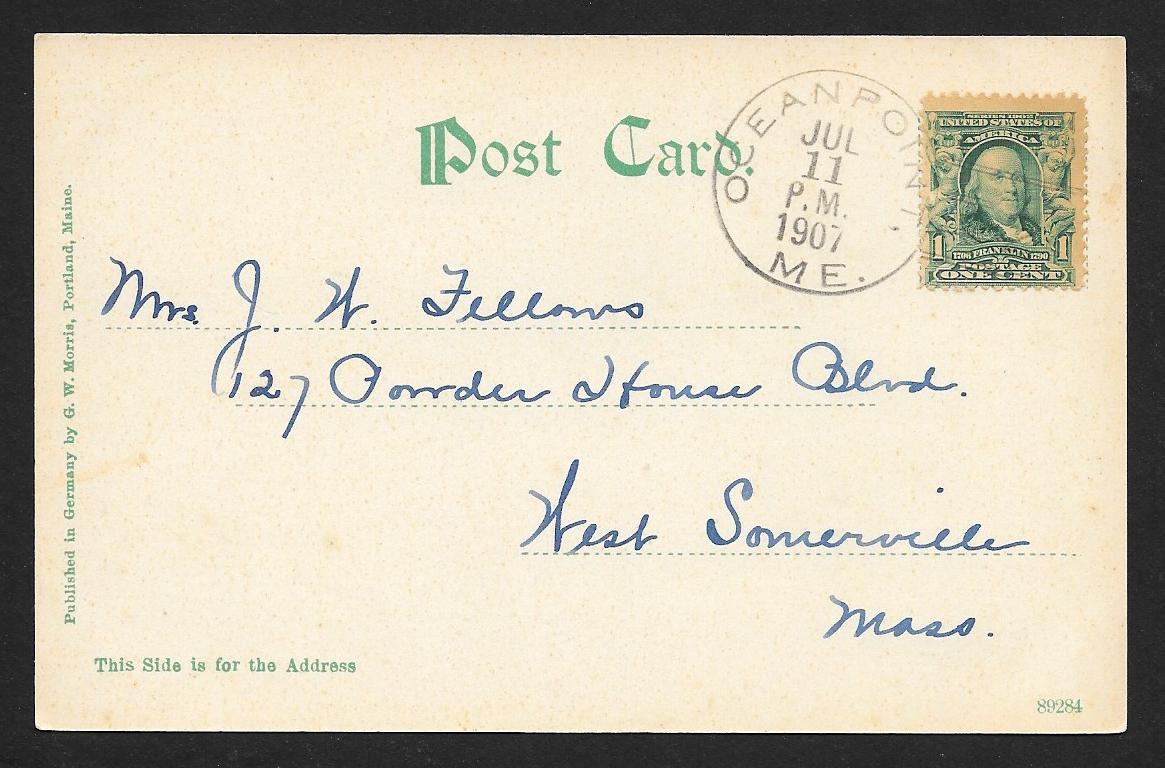 Post Card.
OCEANPOINT,
JUL
11
P.M.
1907
ME.
SERIES 1902
UNITED STATES OF
AMERICA
1 1
1706 FRANKLIN 1790
POSTAGE
ONE CENT
Mrs. J. W. Fellows
127 Powder House Blvd.
West Somerville
Mass.
Published in Germany by G. W. Morris, Portland, Maine.
This Side is for the Address
89284